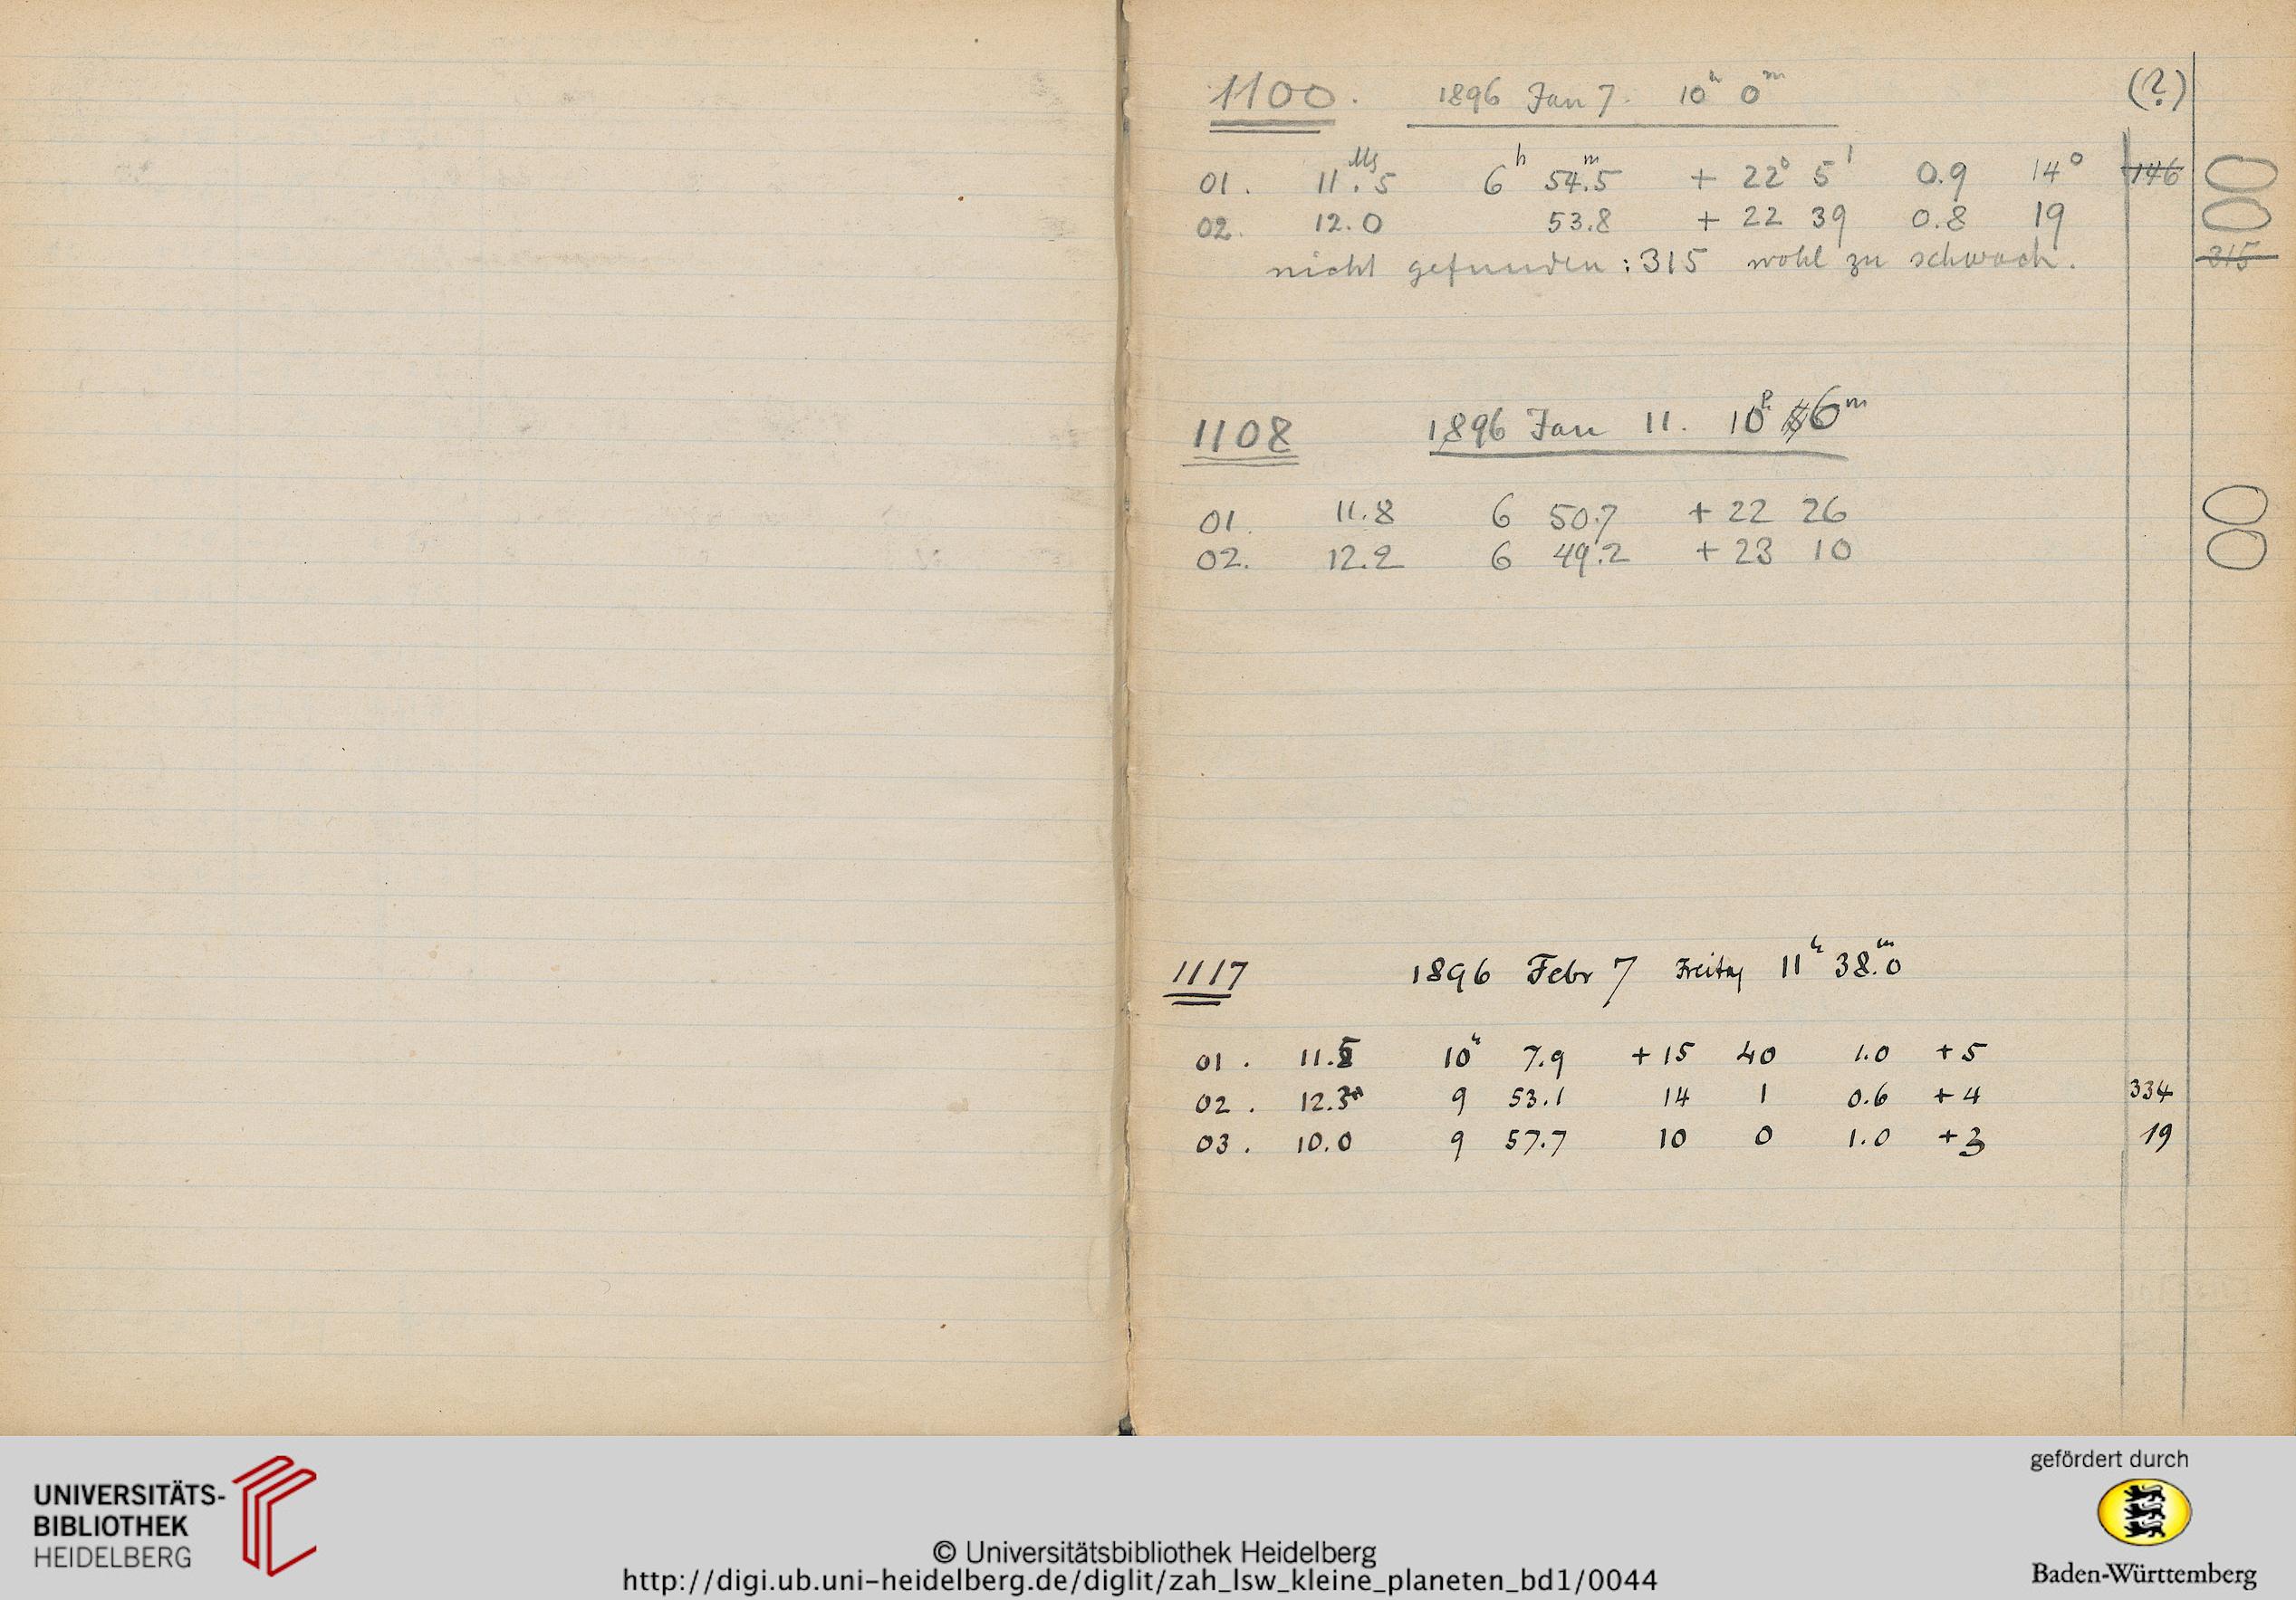 1100. 1896 Jan 7. 10h 0m (?)
01. 11.Mg5 6h 54.m5 + 22° 5' 0.9 14° 146
02. 12.0 53.8 + 22 39 0.8 19
nicht gefunden: 315 wohl zu schwach. 315
1108 1896 Jan 11. 10h 6m
01. 11.8 6 50.7 + 22 26
02. 12.2 6 49.2 + 23 10
1117 1896 Febr 7 Freitag 11h 38.m0
01. 11.5 10h 7.9 + 15 40 1.0 + 5
02. 12.3 9 53.1 14 1 0.6 + 4 334
03. 10.0 9 57.7 10 0 1.0 + 3 19
UNIVERSITÄTS-
BIBLIOTHEK
HEIDELBERG
© Universitätsbibliothek Heidelberg
http://digi.ub.uni-heidelberg.de/diglit/zah_lsw_kleine_planeten_bd1/0044
gefördert durch
Baden-Württemberg